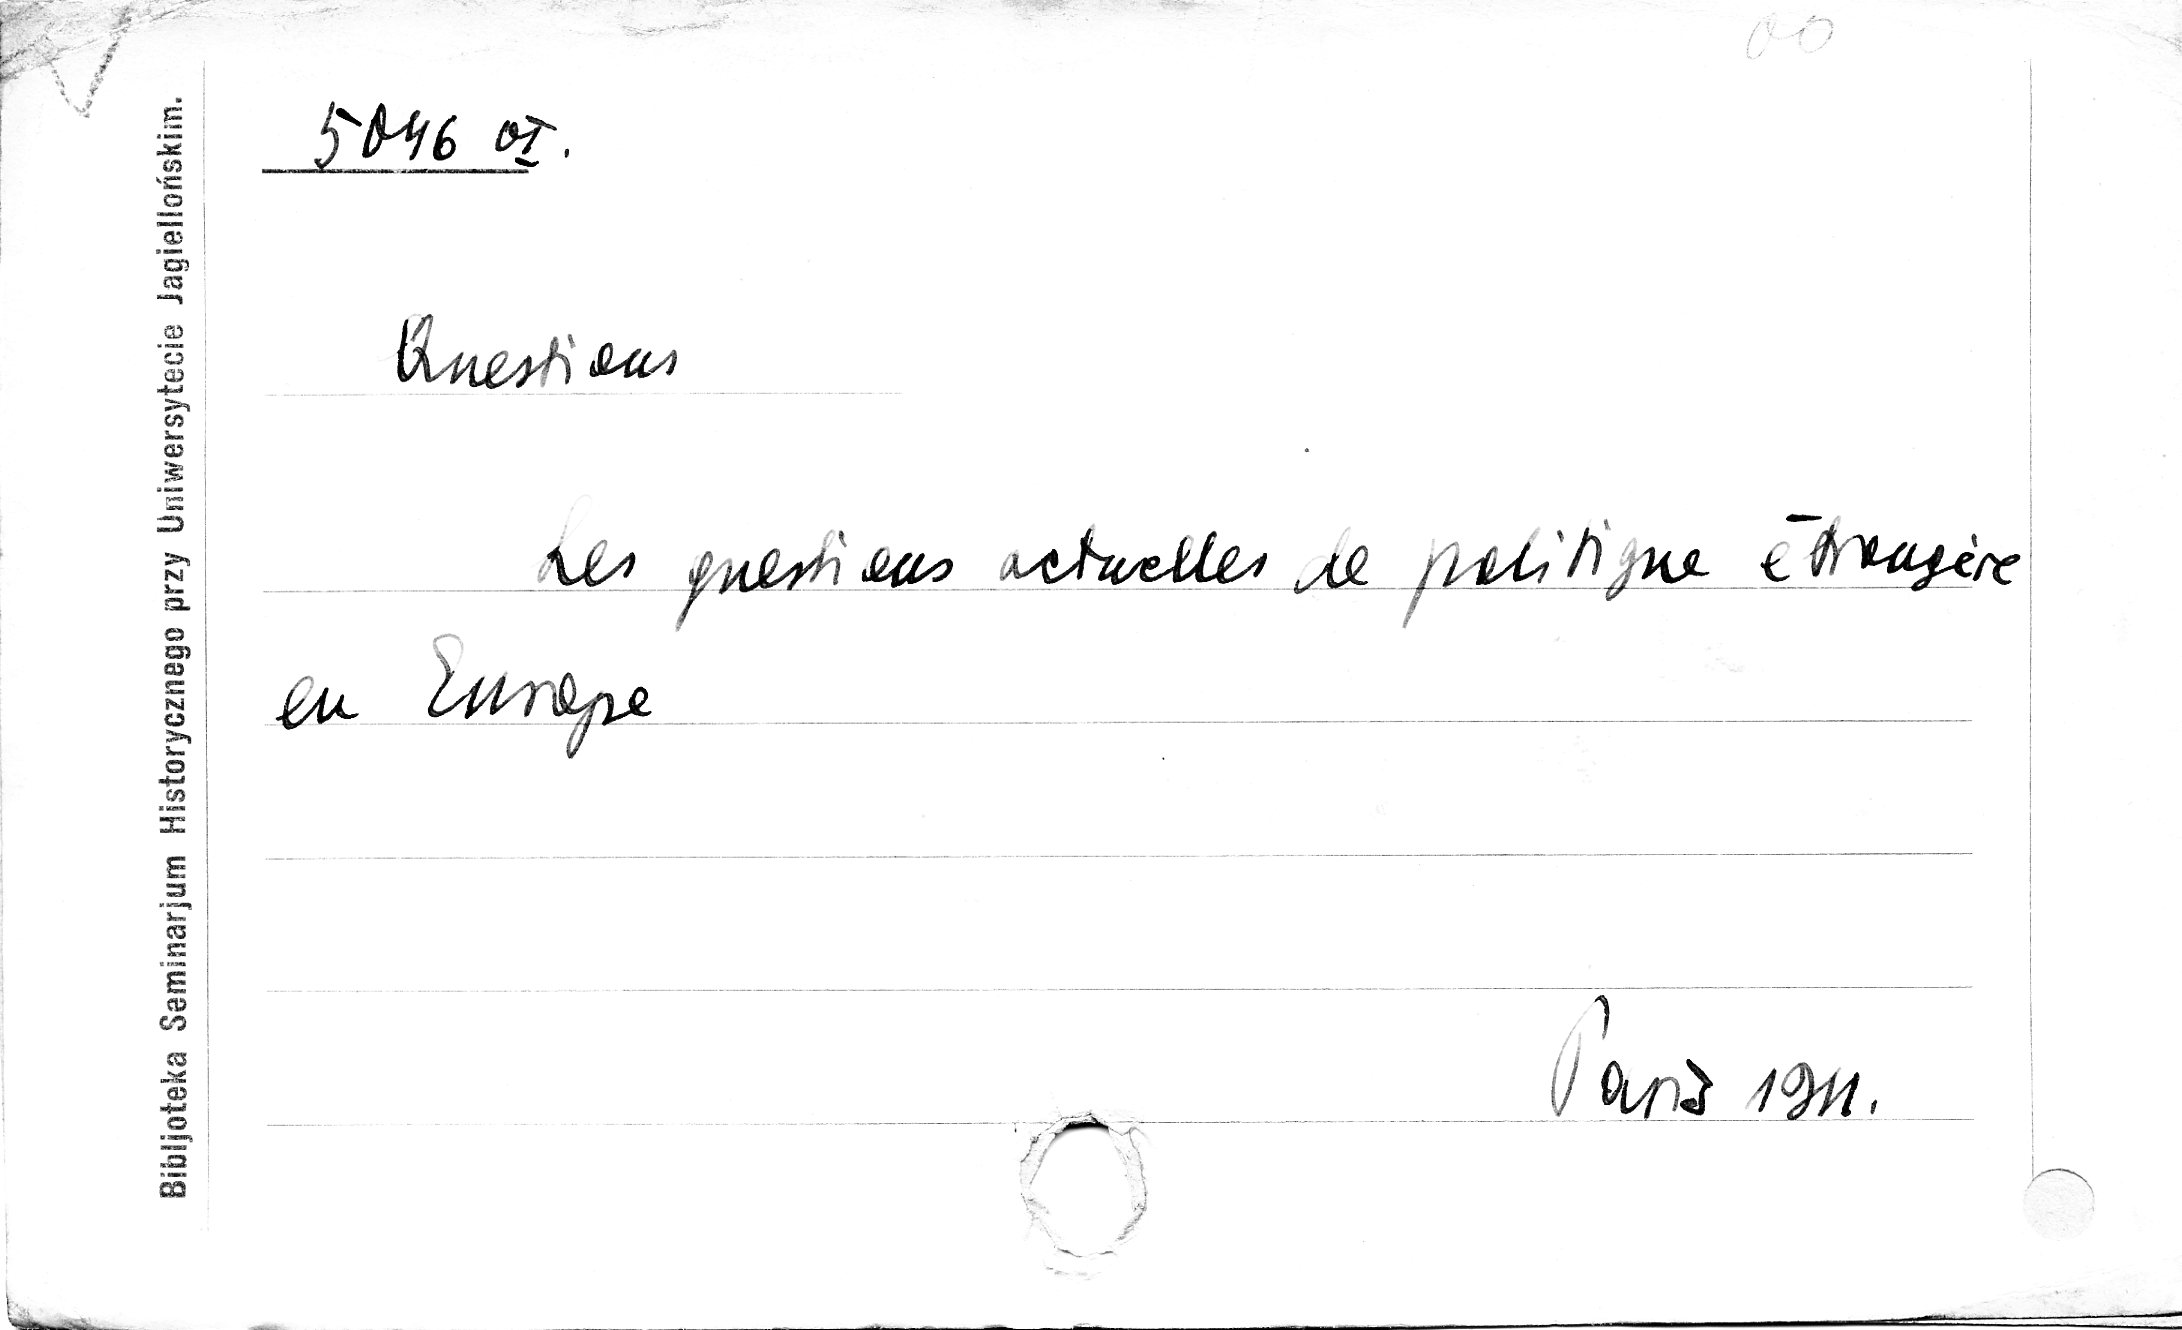 Bibljoteka Seminarjum Historycznego przy Uniwersytecie Jagiellońskim.
5046
Questions
Les questions actuelles de politique étrangère
en Europe
Paris 1911.